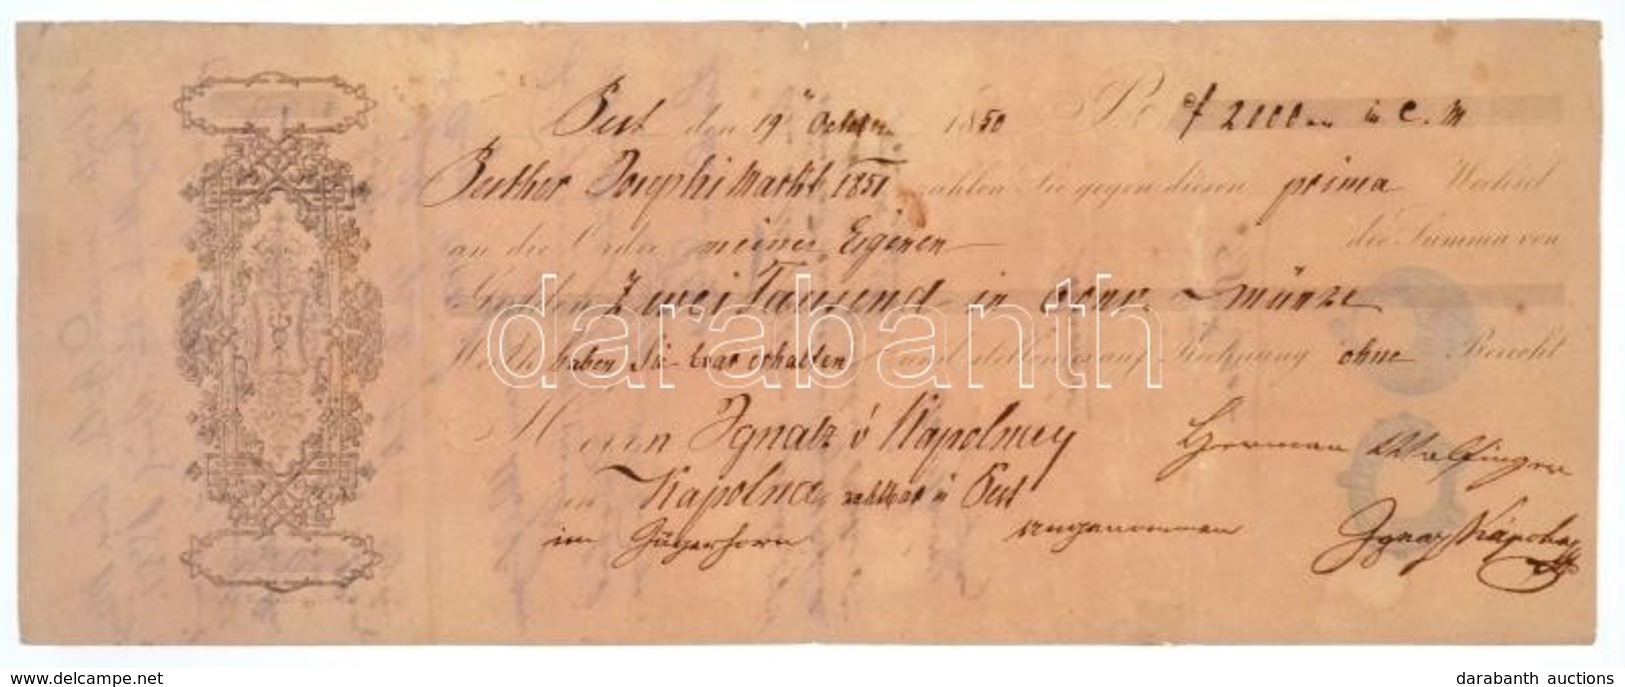 Pest den 19 October 1850 Pr f 2000 in C. M
Pesther Josephi Markt 1851 zahlen Sie gegen diesen prima Wechsel
an die Order meiner Eigenen die Summa von
Gulden Zwei Tausend in Conv. münze
Werth haben Sie baar erhalten und stellen es auf Rechnung ohne Bericht
Herrn Ignatz v Kápolnay Herman Wolfinger
in Kápolna zahlbar in Pest
im Jägerhorn angenommen Ignaz Kápolnay
darabanth
www.darabanth.com
darabanth auctions